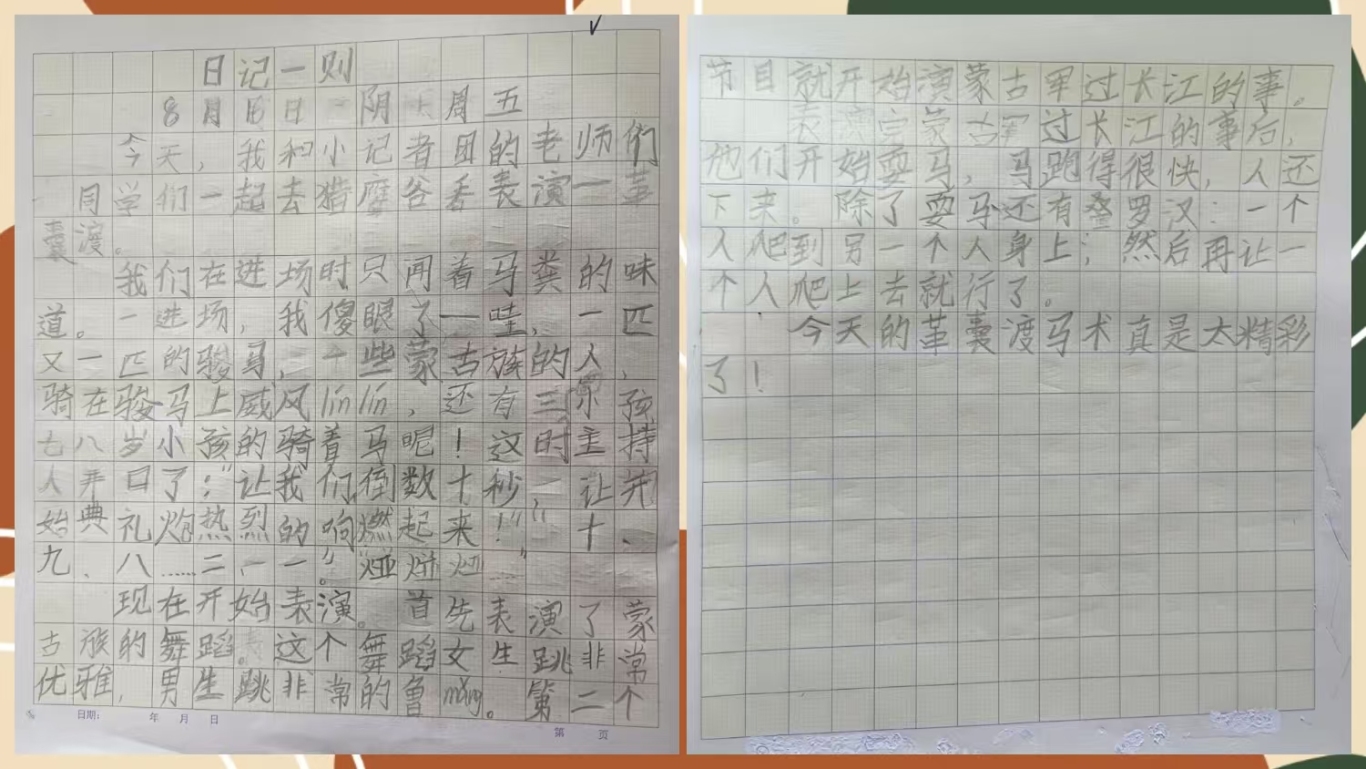 日记一则
8月16日 阴 周五
今天，我和小记者团的老师们
同学们一起去猎鹰谷看表演一革
囊渡。
我们在进场时只闻着马粪的味
道。一进场，我傻眼了一哇，一匹
又一匹的骏马，一些蒙古族的人，
骑在骏马上威风lín lín，还有三
七八岁小孩的骑着马呢！这时主持
人开口了：“让我们倒数十秒，让开
始典礼炮热烈的响燃起来！”“十、
九、八……二、一。”
现在开始表演。首先表演了蒙
古族的舞蹈。这个舞蹈女生跳非常
优雅，男生跳非常的鲁mǎng。第二个
日期： 年 月 日
第 页
节目就开始演蒙古军过长江的事。
表演完蒙古军过长江的事后，
他们开始耍马，马跑得很快，人还
下来。除了耍马还有叠罗汉：一个
人爬到另一个人身上；然后再让一
个人爬上去就行了。
今天的革囊渡马术真是太精彩
了！